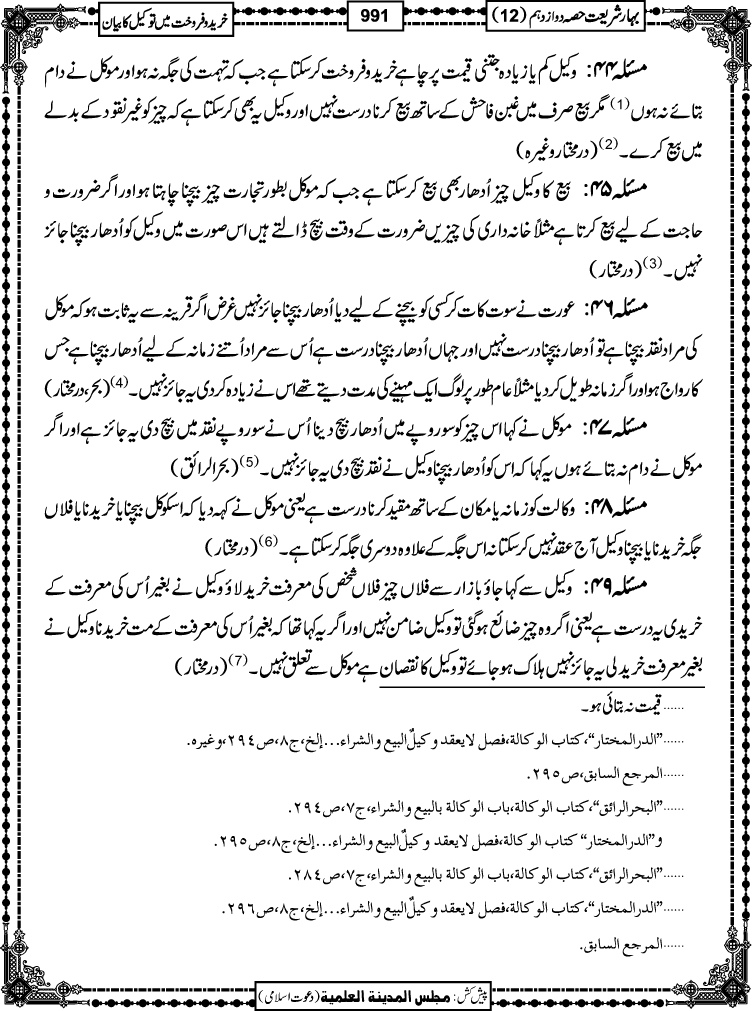 بہارِ شریعت حصہ دوازدہم (12)
991
خرید و فروخت میں توکیل کا بیان
مسئلہ ۴۴: وکیل کم یا زیادہ جتنی قیمت پر چاہے خرید و فروخت کرسکتا ہے جب کہ تہمت کی جگہ نہ ہو اور موکل نے دام
بتائے نہ ہوں(1) مگر بیع صرف میں غبن فاحش کے ساتھ بیع کرنا درست نہیں اور وکیل یہ بھی کرسکتا ہے کہ چیز کو غیر نقود کے بدلے
میں بیع کرے۔(2) (درمختار وغیرہ)
مسئلہ ۴۵: بیع کا وکیل چیز اُدھار بھی بیع کرسکتا ہے جب کہ موکل بطور تجارت چیز بیچنا چاہتا ہو اور اگر ضرورت و
حاجت کے لیے بیع کرتا ہے مثلاً خانہ داری کی چیزیں ضرورت کے وقت بیچ ڈالتے ہیں اس صورت میں وکیل کو اُدھار بیچنا جائز
نہیں۔(3) (درمختار)
مسئلہ ۴۶: عورت نے سوت کات کر کسی کو بیچنے کے لیے دیا اُدھار بیچنا جائز نہیں غرض اگر قرینہ سے یہ ثابت ہو کہ موکل
کی مراد نقد بیچنا ہے تو اُدھار بیچنا درست نہیں اور جہاں اُدھار بیچنا درست ہے اُس سے مراد اُتنے زمانہ کے لیے اُدھار بیچنا ہے جس
کا رواج ہو اور اگر زمانہ طویل کردیا مثلاً عام طور پر لوگ ایک مہینے کی مدت دیتے تھے اس نے زیادہ کردی یہ جائز نہیں۔(4) (بحر، درمختار)
مسئلہ ۴۷: موکل نے کہا اس چیز کو سو روپے میں اُدھار بیچ دینا اُس نے سو روپے نقد میں بیچ دی یہ جائز ہے اور اگر
موکل نے دام نہ بتائے ہوں یہ کہا کہ اس کو اُدھار بیچنا وکیل نے نقد بیچ دی یہ جائز نہیں۔(5) (بحرالرائق)
مسئلہ ۴۸: وکالت کو زمانہ یا مکان کے ساتھ مقید کرنا درست ہے یعنی موکل نے کہہ دیا کہ اسکو کل بیچنا یا خریدنا یا فلاں
جگہ خریدنا یا بیچنا وکیل آج عقد نہیں کرسکتا نہ اس جگہ کے علاوہ دوسری جگہ کرسکتا ہے۔(6) (درمختار)
مسئلہ ۴۹: وکیل سے کہا جاؤ بازار سے فلاں چیز فلاں شخص کی معرفت خرید لاؤ وکیل نے بغیر اُس کی معرفت کے
خریدی یہ درست ہے یعنی اگر وہ چیز ضائع ہوگئی تو وکیل ضامن نہیں اور اگر یہ کہا تھا کہ بغیر اُس کی معرفت کے مت خریدنا وکیل نے
بغیر معرفت خرید لی یہ جائز نہیں ہلاک ہو جائے تو وکیل کا نقصان ہے موکل سے تعلق نہیں۔(7) (درمختار)
......قیمت نہ بتائی ہو۔
......”الدرالمختار“،کتاب الوکالة،فصل لایعقد وکیلٌ البیع والشراء...إلخ،ج۸،ص۲۹٤،وغیرہ.
......المرجع السابق،ص۲۹۵.
......”البحرالرائق“،کتاب الوکالة،باب الوکالة بالبیع والشراء،ج۷،ص۲۹٤.
و”الدرالمختار“ کتاب الوکالة،فصل لایعقد وکیلٌ البیع والشراء...إلخ،ج۸،ص۲۹۵.
......”البحرالرائق“،کتاب الوکالة،باب الوکالة بالبیع والشراء،ج۷،ص۲۸٤.
......”الدرالمختار“،کتاب الوکالة،فصل لایعقد وکیلٌ البیع والشراء...إلخ،ج۸،ص۲۹٦.
......المرجع السابق.
پیش کش: مجلس المدینة العلمیة (دعوت اسلامی)